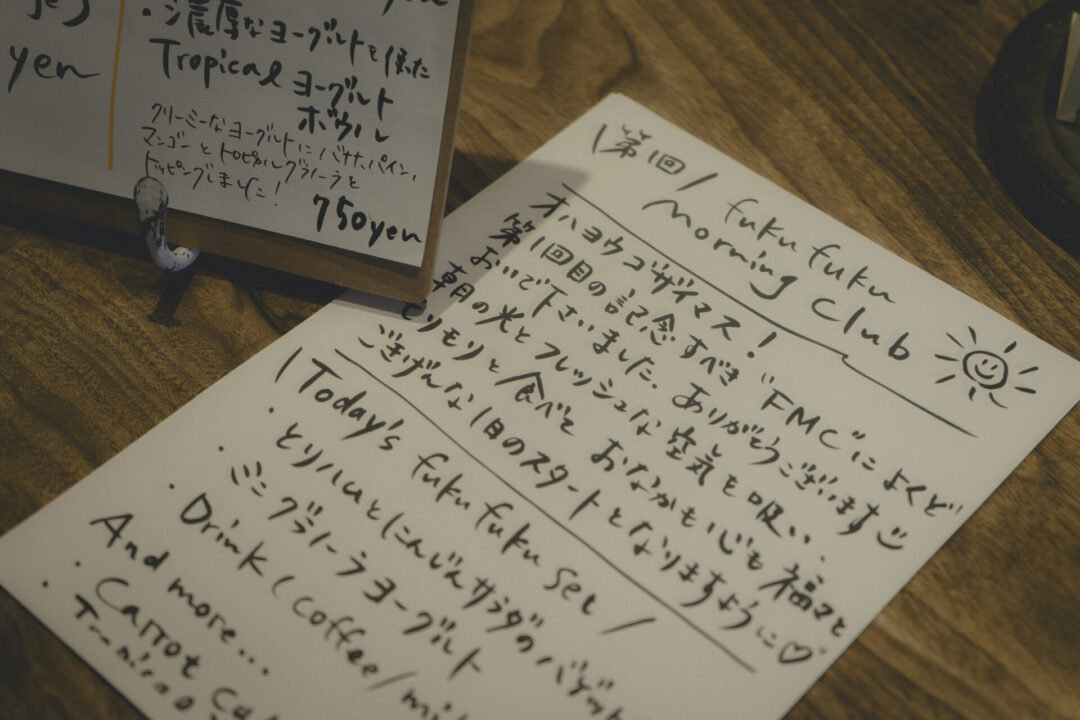 yen
・濃厚なヨーグルトを使った
Tropical ヨーグルト
ボウル
クリーミーなヨーグルトにバナナ、パイン、
マンゴーとトロピカルグラノーラを
トッピングしました!
750yen
\第1回/
fuku fuku
morning Club
オハヨウゴザイマス!
第1回目の記念すべき"FMC"によくど
おいで下さいました。ありがとうございます
朝の光とフレッシュな空気を吸い、
もりもりと食べておなかも心も福々と
ごきげんな1日のスタートとなりますように♡
\Today's fuku fuku set/
・とりハムとにんじんサラダのバゲット
・ミニグラノーラヨーグルト
・Drink (coffee/mi
And more...
・Carrot Ca
・Tropical